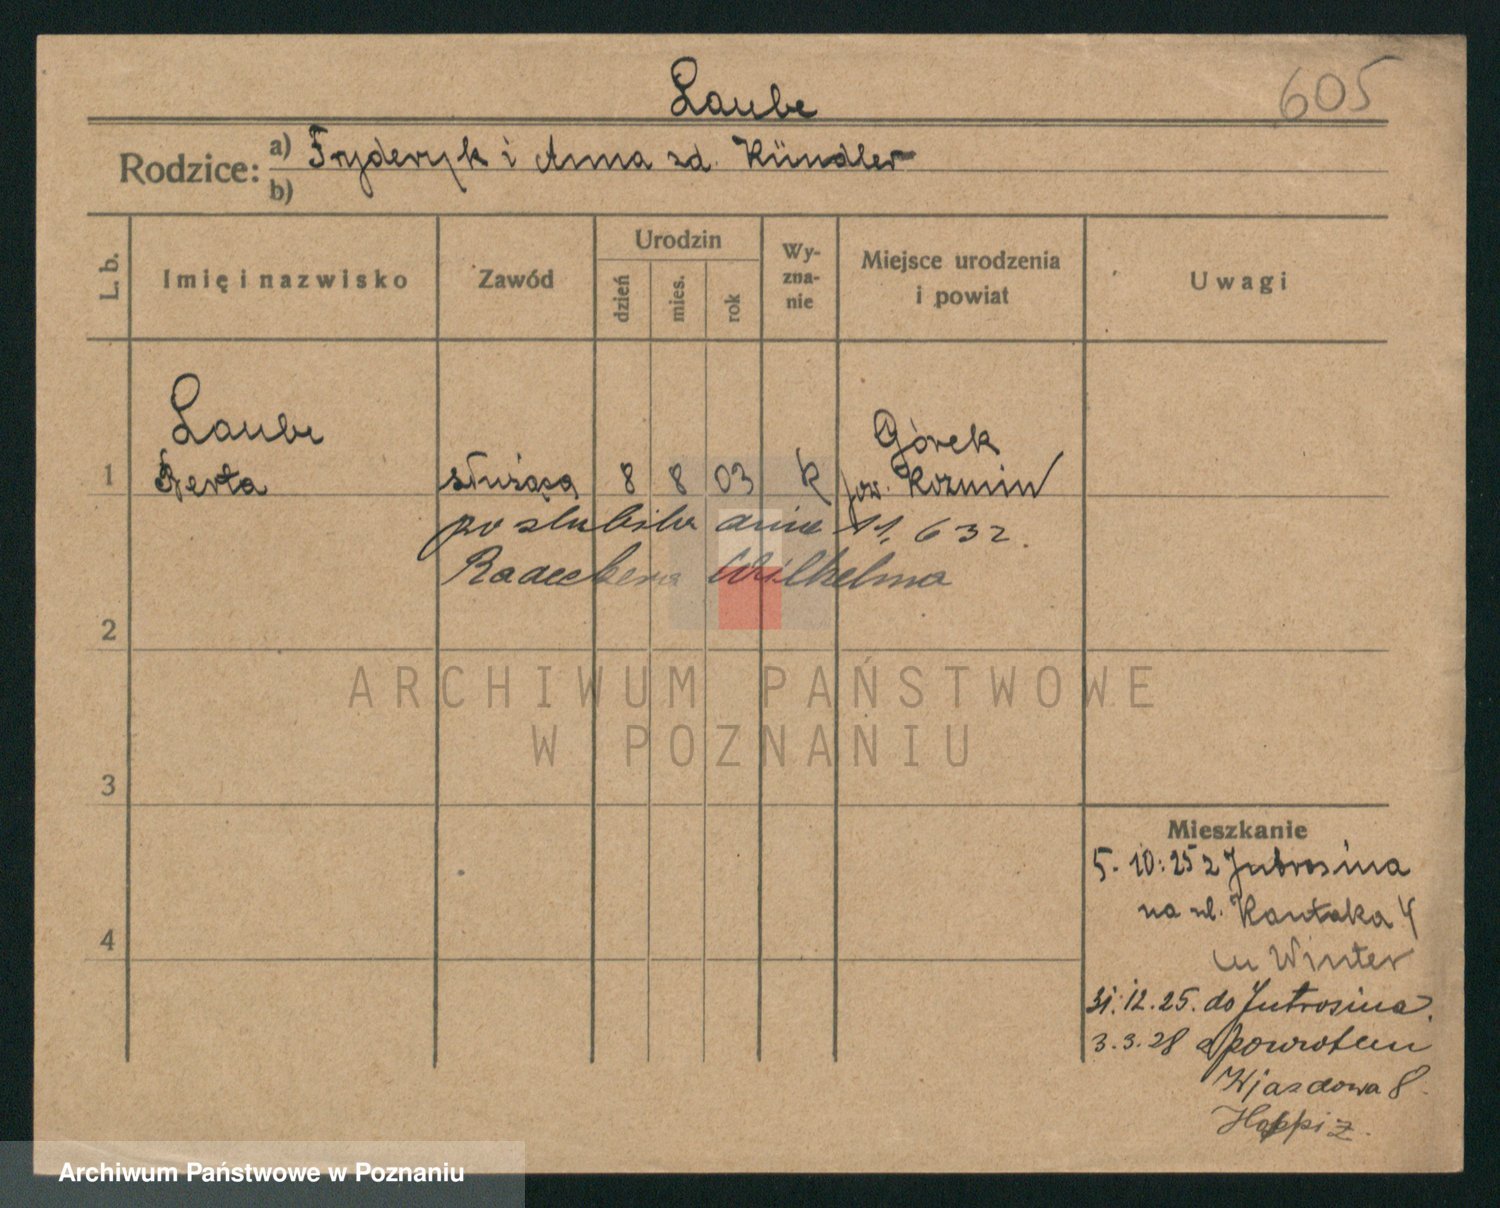 605
Laube
Rodzice: a) Fryderyk i Anna zd. Kündler
b)
L. b. Imię i nazwisko Zawód Urodzin dzień mies. rok Wyznanie Miejsce urodzenia i powiat Uwagi
Laube Górek
1 Berta służąca 8 8 03 k pow. Kozmin
poslubiła dnia 11. 6 32.
Wilhelma
2
ARCHIWUM PAŃSTWOWE
W POZNANIU
3
Mieszkanie
5. 10. 25 z Jutrosina
na ul. Kantaka 4
Winter
4
31. 12. 25. do Jutrosina.
3. 3. 28 z powrotem
Wjazdowa 8.
Archiwum Państwowe w Poznaniu